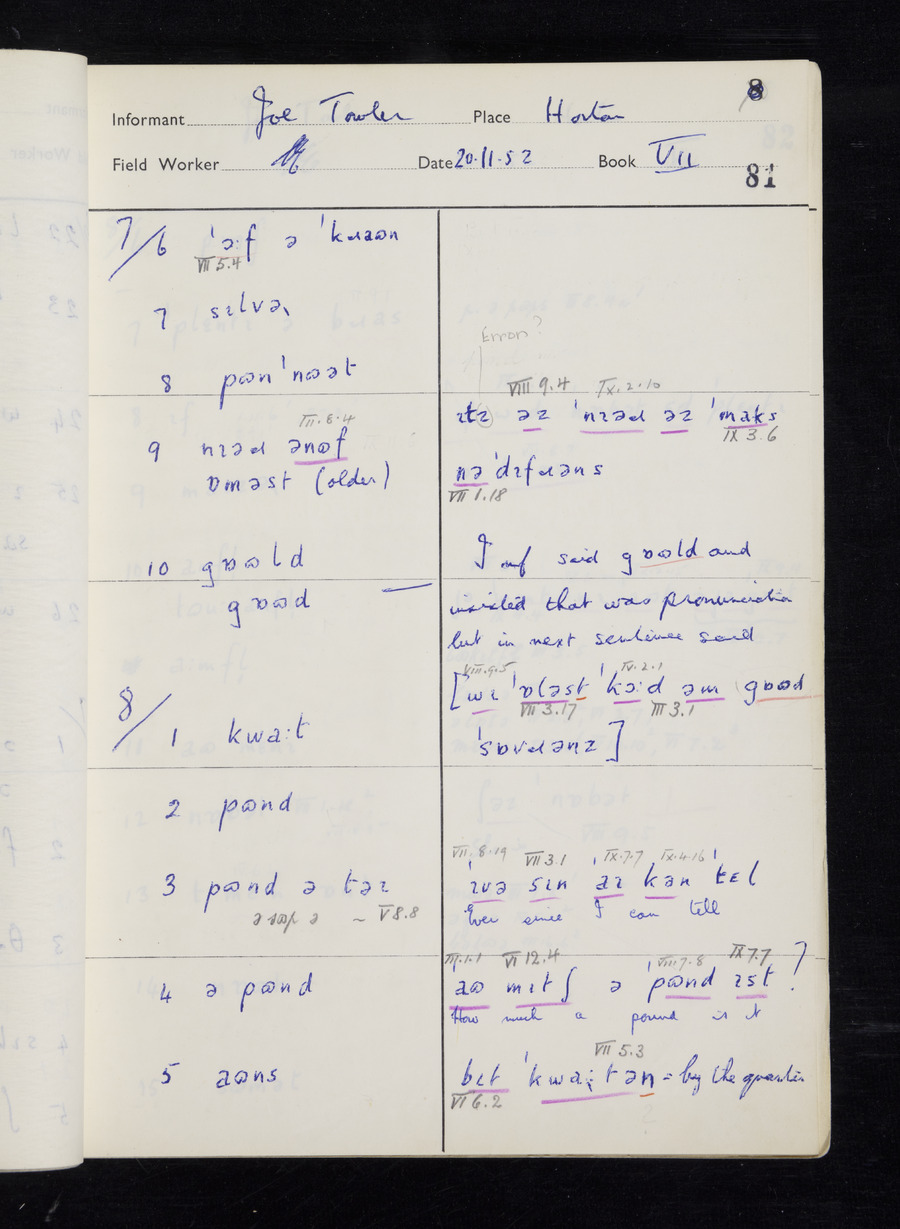 8
Informant Joe Towler Place Horton
Field Worker Date 20.11.52 Book VII
81
7/6 ˈəːf ə ˈkɹaʊn
VII 5.4
7 sɪlvə
Error?
8 pʊnˈnoət
VIII 9.4 IX.2.10
ɪtz əz ˈnɪəɹ əz ˈmaks
IX 3.6
VII.8.4
9 nɪəɹ ənʊf
ɒməst (older)
nə ˈdɪfɹəns
VII 1.18
10 gɒʊld
Inf said gɒʊld and
gɒʊd
insisted that was pronunciation
but in next sentence said
VIII.9.5 IV.2.1
[wɪ ˈɒləst ˈkəːd əm gɒʊd
VII 3.17 III 3.1
ˈsɒvɹənz]
8/1 kwaːt
2 pʊnd
VII.8.19 VII 3.1 IX.7.7 IX.4.16
3 pʊnd ə tɪə
ˈɪvə sɪn ˈaɪ kən ˈtɛl
Ever since I can tell
~ V 8.8
III.1.1 VI 12.4 VII.7.8 IX 7.7
4 ə pʊnd
aʊ mɪtʃ ə ˈpʊnd ɪst ?
How much a pound is it
VII 5.3
5 aʊns
bɪt ˈkwaːtən = by the quarter
VI 6.2